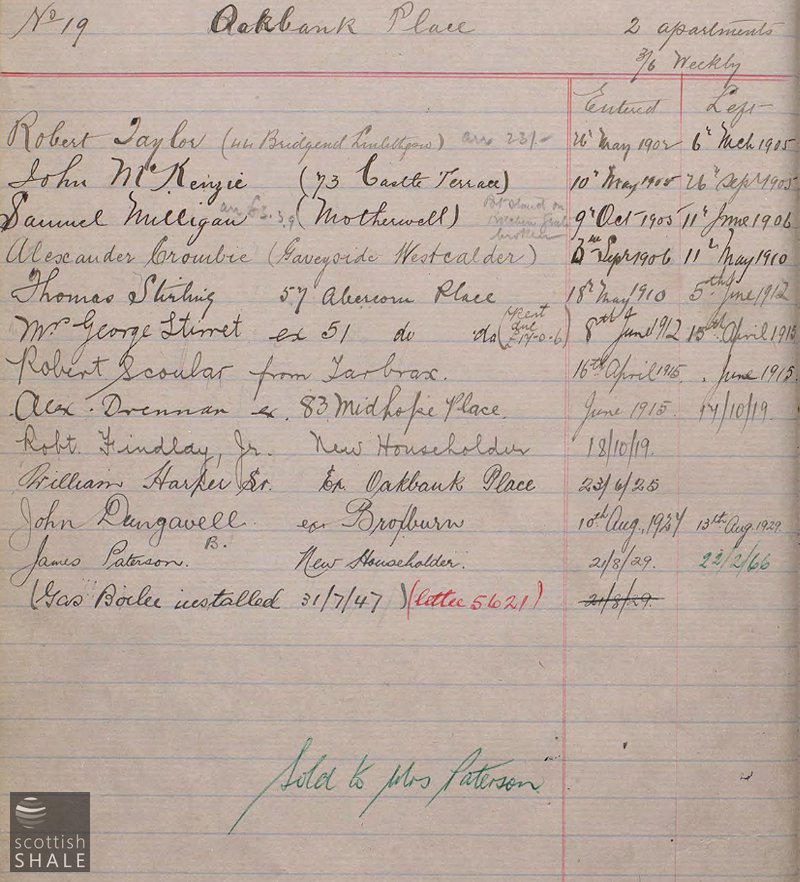 No 19 Oakbank Place 2 apartments
3/6 Weekly
Entered Left
Robert Taylor (44 Bridgend Linlithgow) arrs 23/- 26th May 1902 6th Mch 1905
John McKenzie (73 Castle Terrace) 10th May 1905 26th Sepr 1905
Samuel Milligan arrs £3.3.9 (Motherwell) broken 9th Oct 1905 11th June 1906
Alexander Crombie (Gaveyside Westcalder) Sepr 1906 11th May 1910
Thomas Stirling 57 Abercorn Place 18th May 1910 5th June 1912
Mrs George Stirret ex 51 do do (Rent due £17-0-6) 8th June 1912 15th April 1915
Robert Scoular from Tarbrax. 16th April 1915. June 1915.
Alex. Drennan ex. 83 Midhope Place. June 1915. 17/10/19.
Robt. Findlay, Jr. New Householder 18/10/19.
William Harper Sr. Ex. Oakbank Place 23/6/25
John Dungavell. ex Broxburn 10th Aug. 1927 13th Aug. 1929
James B. Paterson. New Householder. 21/8/29. 22/2/66
(Gas Boiler installed 31/7/47) (letter 5621) 21/8/29.
Sold to Mrs Paterson
scottish
SHALE